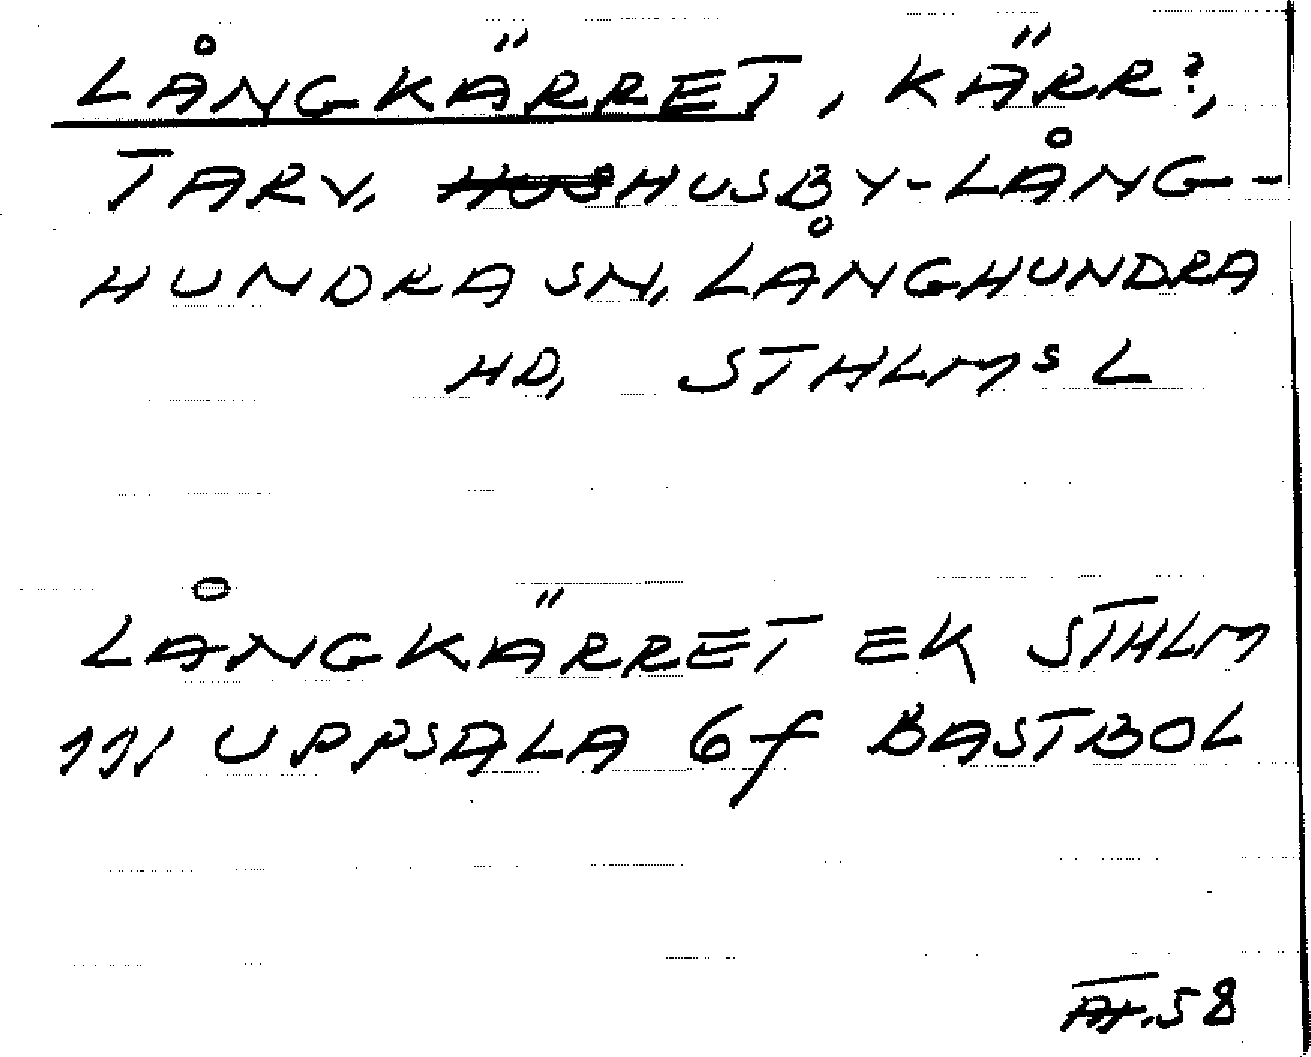 LÅNGKÄRRET, KÄRR?,
TARV, HUSBY-LÅNG-
HUNDRA SN, LÅNGHUNDRA
HD, STHLMS L
LÅNGKÄRRET EK STHLM
111 UPPSALA 6f BASTBOL
58